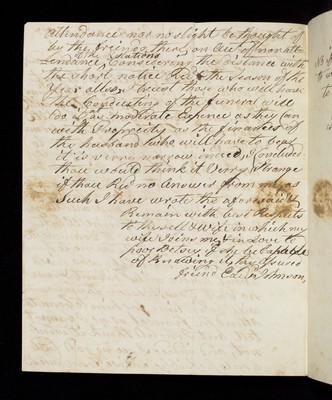 attendance nor no slight be thought of
by the friends there on Acct of non atten
& the Relations
dence, Considering the distance with
the short notice & the Season of the
Year allso, I trust those who will have
the Conducting of the funeral will
do it as moderate Expence as they can
with Propriety as the finances of
thy husband who will have to pay
it is verry narrow indeed, I Concluded
thou would think it Verry Strange
if thou had no Answer from me, as
Such I have wrote the aforesaid,
Remain with best Respects
to thyself & Wife in which my
wife Joins me & in Love to
poor Betsey if she be Capable
of Knowing it, thy assured
friend Edwd Johnson,